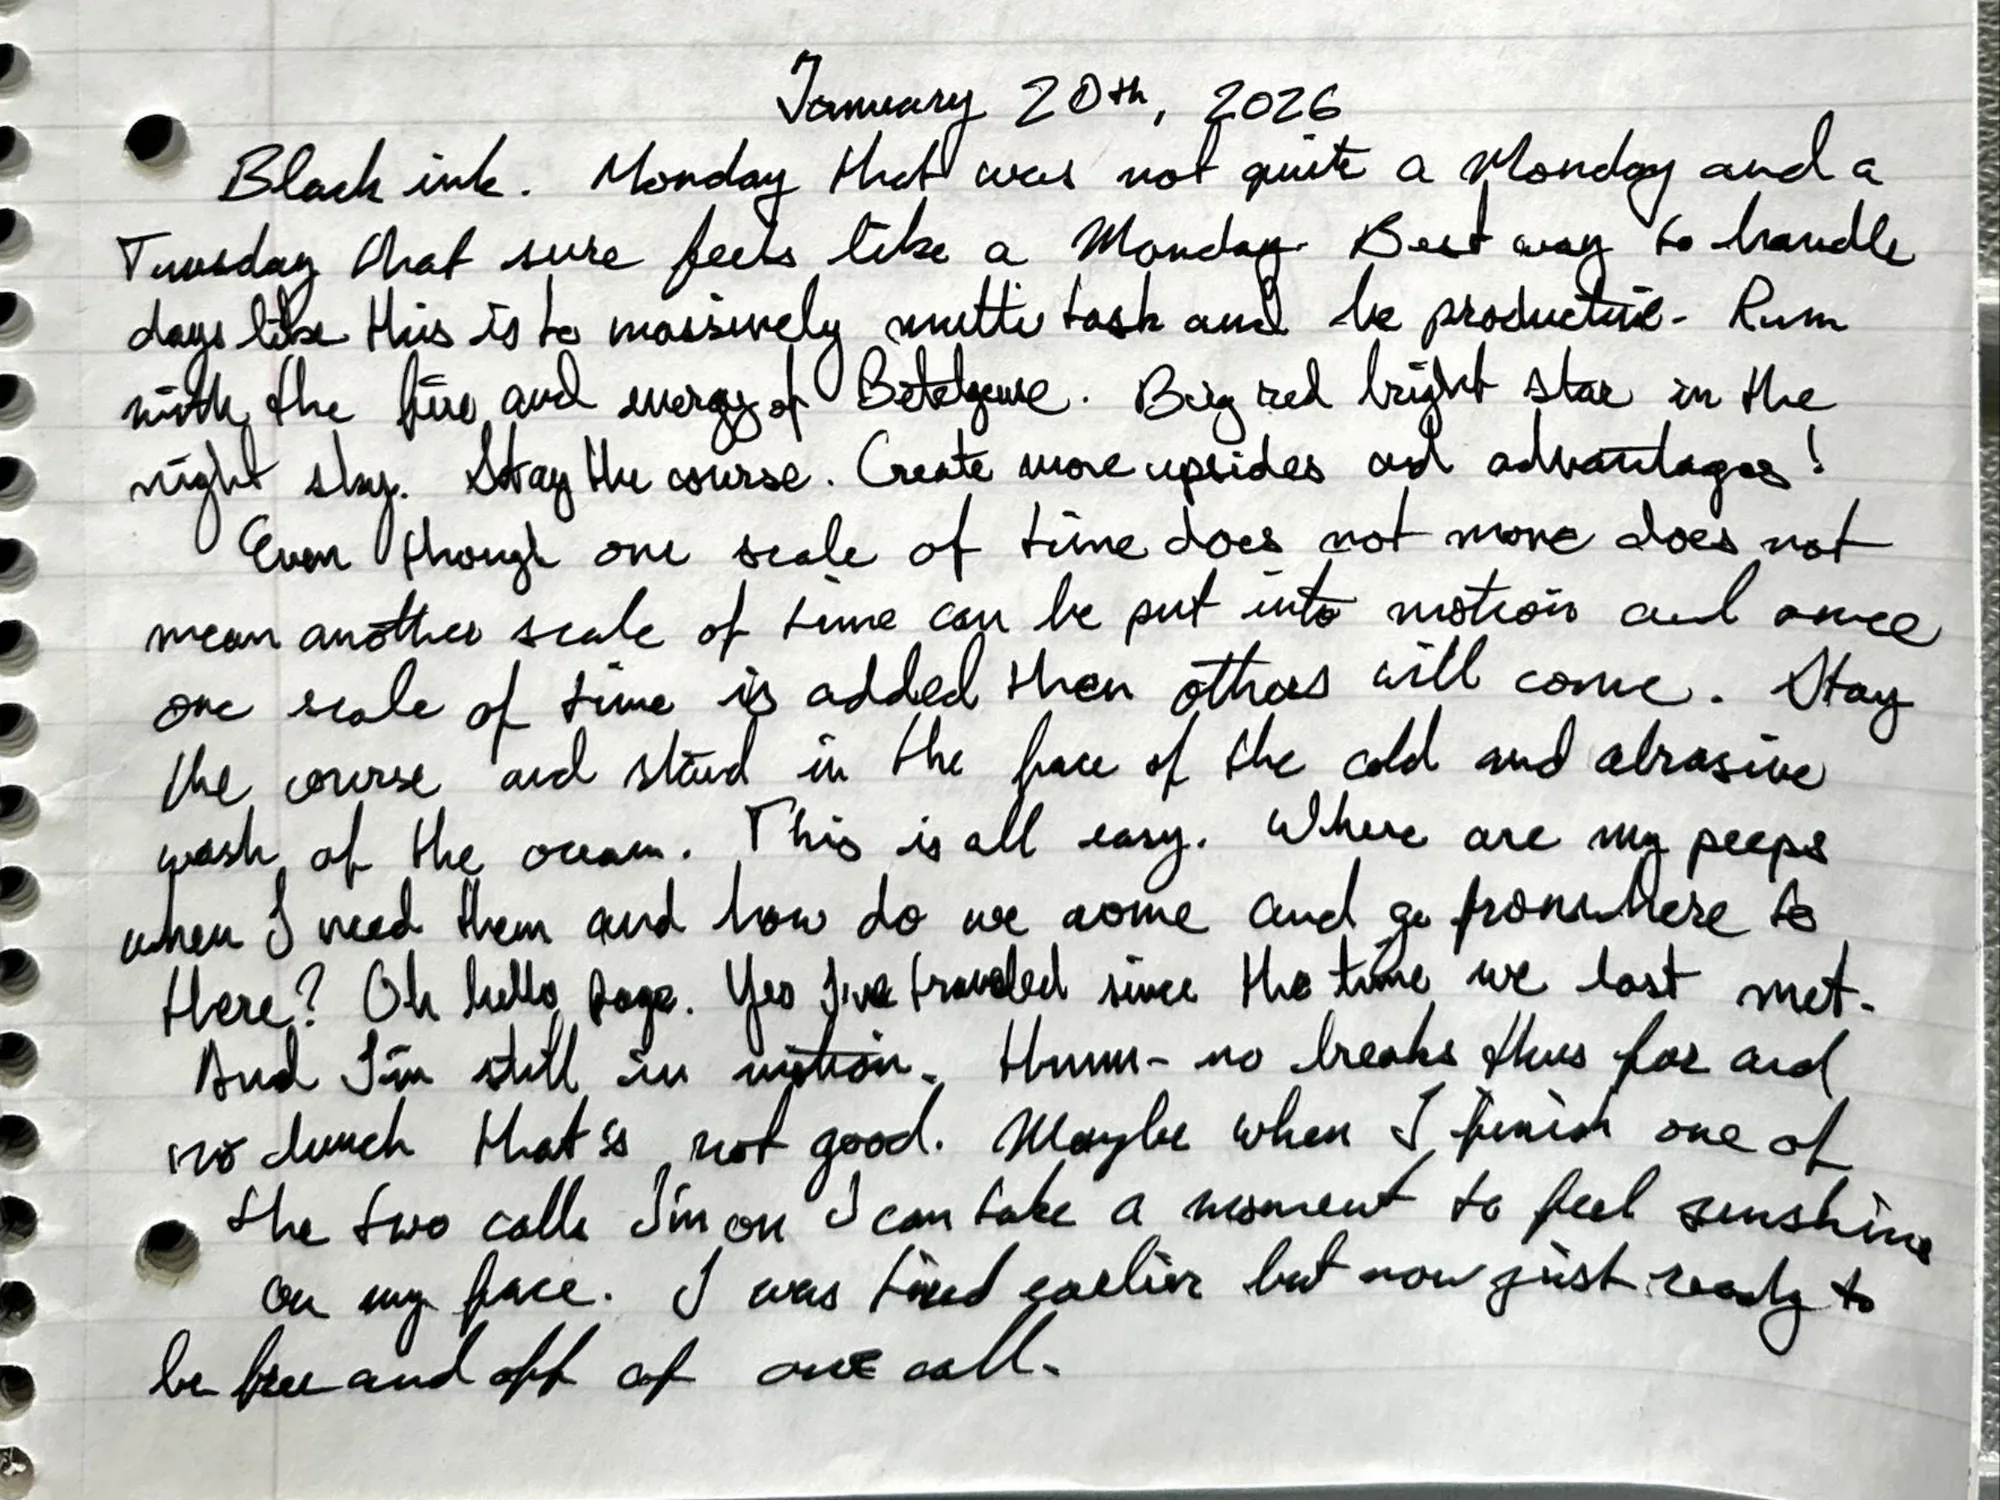 January 20th, 2026
Black ink. Monday that was not quite a Monday and a
Tuesday that sure feels like a Monday. Best way to handle
days like this is to massively multi task and be productive. Run
with the fire and energy of Betelgeuse. Big red bright star in the
night sky. Stay the course. Create more upsides and advantages!
Even though one scale of time does not move does not
mean another scale of time can be put into motion and once
one scale of time is added then others will come. Stay
the course and stand in the face of the cold and abrasive
wash of the ocean. This is all easy. Where are my peeps
when I need them and how do we come and go from here to
there? Oh hello page. Yes I've traveled since the time we last met.
And I'm still in motion. Hmm - no breaks thus far and
no lunch that is not good. Maybe when I finish one of
the two calls I'm on I can take a moment to feel sunshine
on my face. I was tired earlier but now just ready to
be free and off of one call.